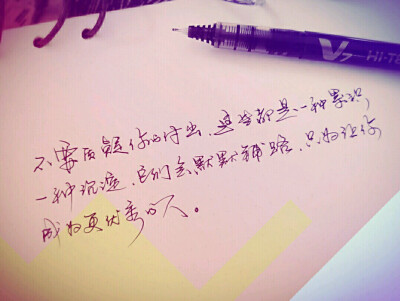 V7 Hi-Te
不要质疑你的付出，这些都是一种累积，
一种沉淀，它们会默默铺路，只为让你
成为更优秀的人。